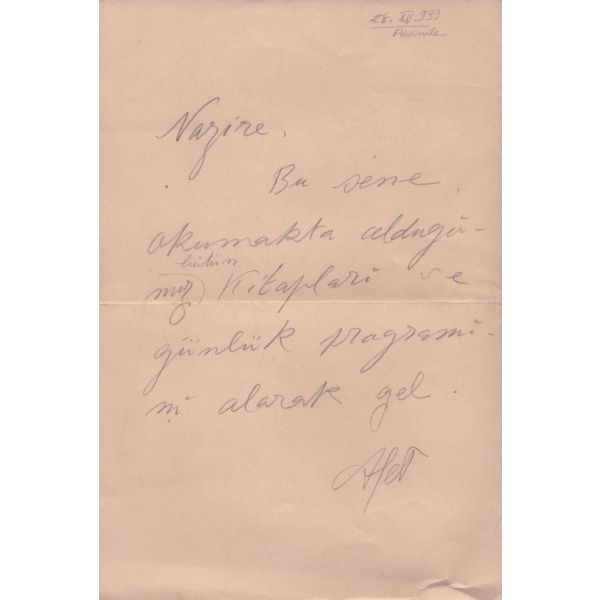 28. XII. 933
Nazire.
Bu sene,
okumakta olduğu-
bütün
muz) Kitapları ve
günlük programı-
nı alarak gel.
Afet